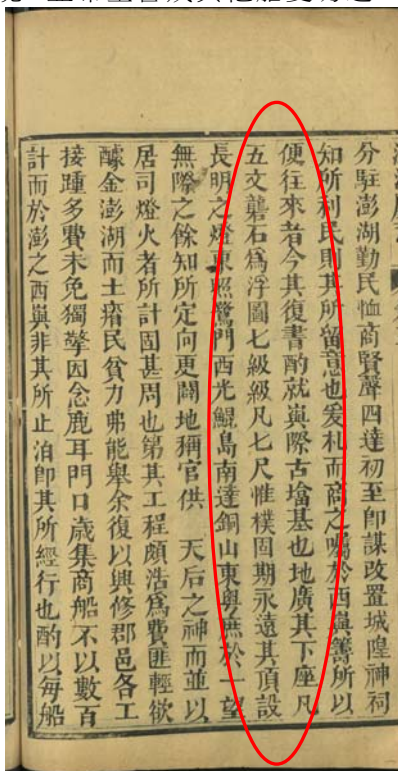 分駐澎湖勤民恤商賢聲四達初至即謀改置城隍神祠
知所利民則其所留意也爰札而商之囑於西嶼籌所以
便往來者今其復書酌就嶼際古墖基也地廣其下座凡
五文礱石爲浮圖七級級凡七尺惟樸固期永遠其頂設
長明之燈東照鷺門西光鯤島南達銅山東粵庶於一望
無際之餘知所定向更闢地稱官供 天后之神而並以
居司燈火者所計固甚周也第其工程頗浩爲費匪輕欲
醵金澎湖而土瘠民貧力弗能舉余復以興修郡邑各工
接踵多費未免獨擎因念鹿耳門口歲集商船不以數百
計而於澎之西嶼非其所止泊卽其所經行也酌以每船